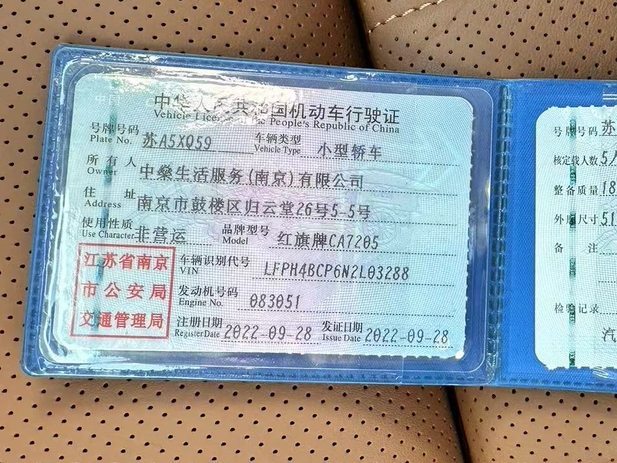 中华人民共和国机动车行驶证
Vehicle License of the People's Republic of China
号牌号码 苏A5XQ59 车辆类型 小型轿车
Plate No. Vehicle Type
所有人 中燊生活服务(南京)有限公司
Owner
住址 南京市鼓楼区归云堂26号5-5号
Address
使用性质 非营运 品牌型号 红旗牌CA7205
Use Character Model
江苏省南京
市公安局
交通管理局
车辆识别代号 LFPH4BCP6N2L03288
VIN
发动机号码 083051
Engine No.
注册日期 2022-09-28 发证日期 2022-09-28
Register Date Issue Date
号牌号码 苏
核定载人数 5人
整备质量 18
外廓尺寸 51
备注
检验记录
汽